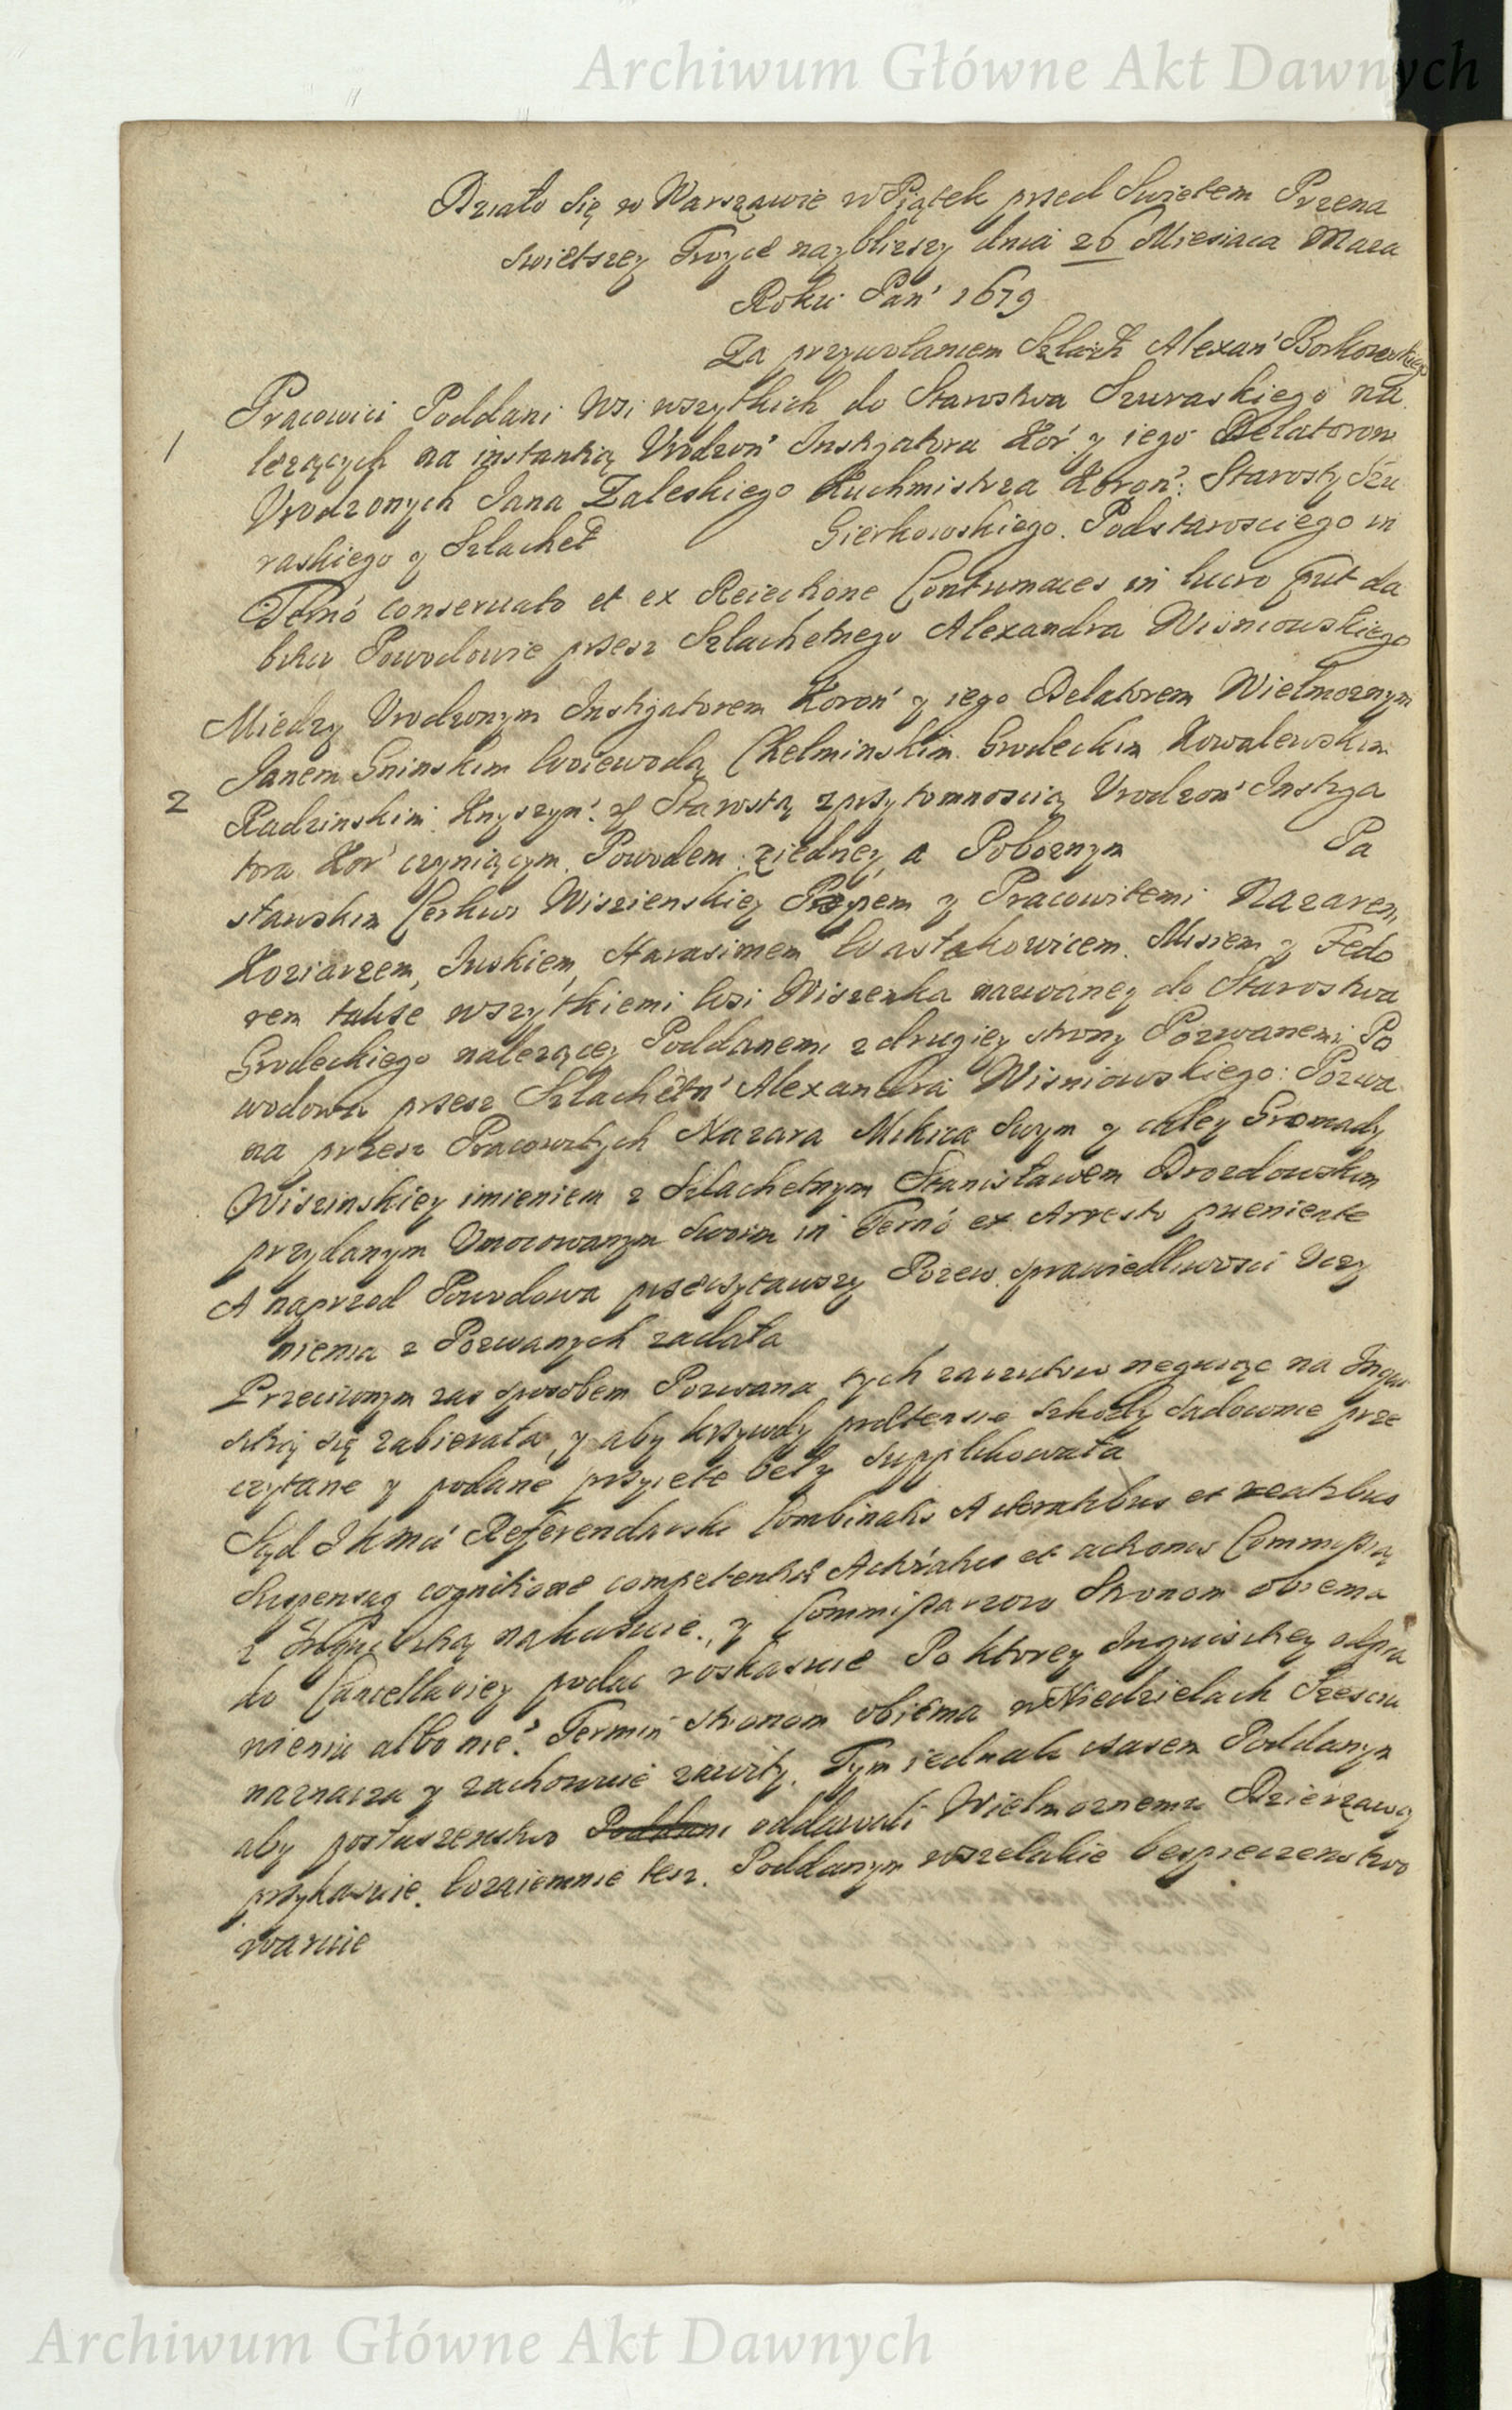 Archiwum Główne Akt Dawnych
Działo się w Warszawie w Piątek przed Swiętem Przena
swiętszey Troyce nayblizszy dnia 26 Miesiaca Maia
Roku Pan' 1679
Za przywołaniem Szlach Alexan' Borkowskiego
1 Pracowici Poddani Wsi wszytkich do Starostwa Szuraskiego na
lezących na instantią Urodzon' Instigatora Kor' y iego Delatorow
Urodzonych Jana Zaleskiego Kuchmistrza Koron': Starosty Szu
raskiego y Szlachet Gierkowskiego. Podstarosciego in
Termó conservato et ex Reiectione Contumaces in lucro sut da
bitur Powodowie przez Szlachetnego Alexandra Wisniowskiego
Miedzy Urodzonym Instigatorem Koron' y iego Delatorem Wielmoznym
Janem Gninskim Woiewodą Chelminskim Grodeckim Kowalewskim
2 Radzinskim Knyszyn': &c Starostą z przytomnoscią Urodzon' Instiga
tora Kor' czyniącym. Powodem ziedney, a Poboznym Pa
stawskim Cerkwi Wiszienskiey Popem y Pracowitemi Nazarem,
Koziarzem, Iuskiem, Harasimem Wastakowicem. Misiem y Fedo
rem takze wszytkiemi Wsi Wiszenka nazwaney do Starostwa
Grodeckiego nalezącey Poddanemi z drugiey strony Pozwanemi Po
wodowa przez Szlachetn' Alexandra Wisniowskiego: Pozwa
na przez Pracowitych Nazara Mikica swym y całey Gromady
Wiszinskiey imieniem z Szlachetnym Stanisławem Drozdowskim
przydanym Umocowanym swoim in Termó ex Arresto pueniente
A naprzod Powodowa przeczytawszy Pozew sprawiedliwosci Uczy
nienia z Pozwanych ządała
Przeciwnym zas sposobem Pozwana tych zarzutow neguiąc na Inqui
sitią się zabierała, y aby krzywdy pretensie szkody sadownie prze
czytane y podane przyięte beły supplikowała
Sąd JKMci Referendarski Combinatis Actoratibus et reatibus
Suspensaq cognitione competentiæ Actoratus et actionis Commissią
z Inquisitią nakazuie, y Commissarzow Stronom obiema
do Cancellariey podac roskazuie Po ktorey Inquisitiey odpra
wieniu albo nie? Termin stronom obiema w Niedzielach Szesciu
naznacza y zachowuie zawity. Tym iednak czasem Poddanym
aby posłuszenstwo Poddani oddawali Wielmoznemu Dzierzawcy
przykazuie. Wzaiemnie tesz. Poddanym wszelakie bespieczenstwo
waruie
Archiwum Główne Akt Dawnych